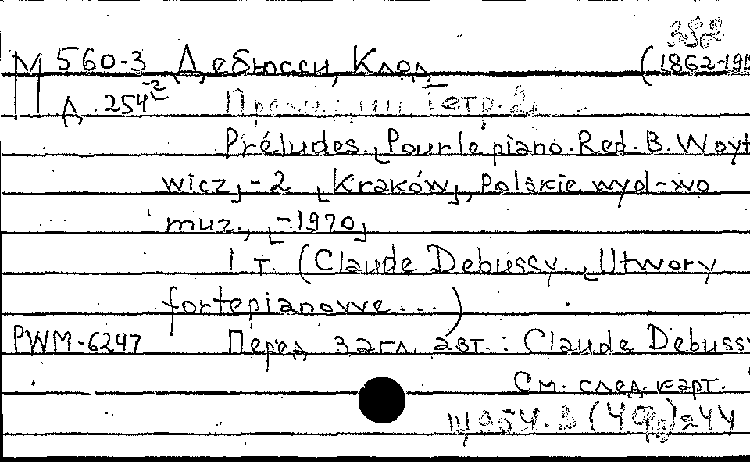 М 560-3 Дебюсси, Клод
(1862-191
Д. 254-2 Тетр. 2.
Préludes. [Pour le piano. Red. B. Woyt
wicz] - 2 [Kraków], Polskie wyd-wo
muz., [-1970]
1 т. (Claude Debussy. [Utwory
fortepianowe...)
PWM-6247 Перед загл. авт.: Claude Debussy
См. след. карт.